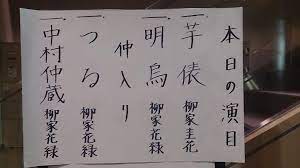 本日の演目
一芋俵 柳家圭花
一明烏 柳家花緑
仲入り
一つる 柳家花緑
一中村仲蔵 柳家花緑